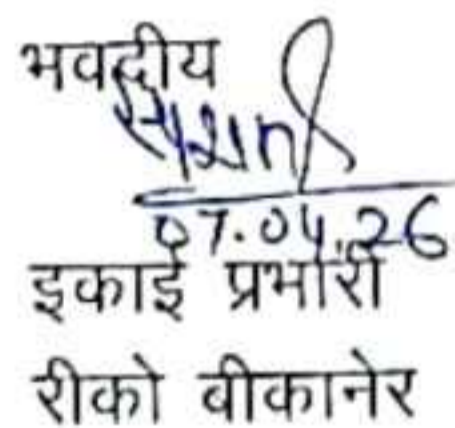 भवदीय
07.04.26
इकाई प्रभारी
रीको बीकानेर